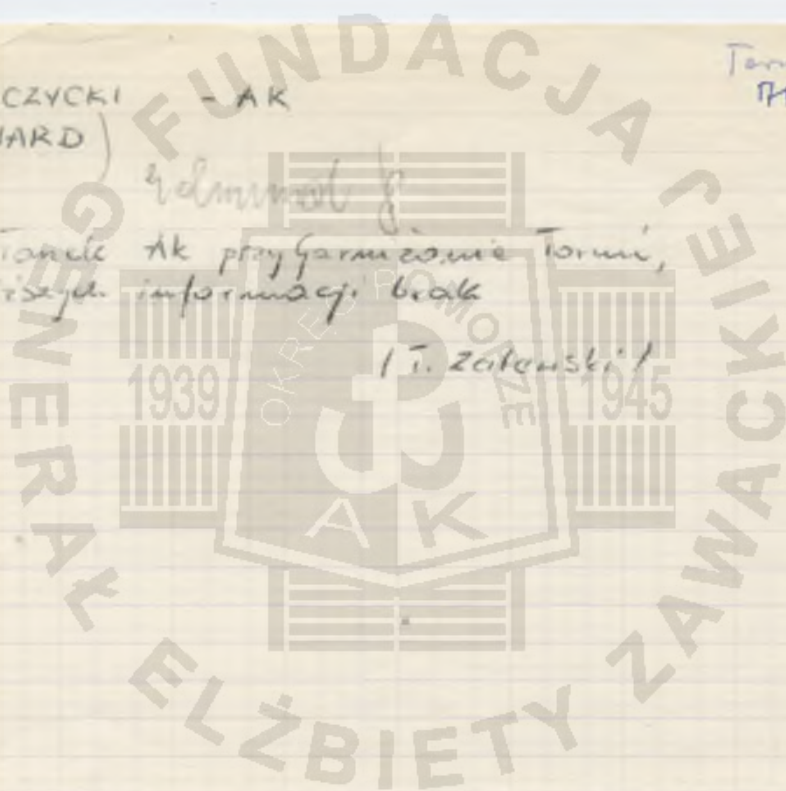 CZYCKI - AK
Toru
IARD)
łonek AK przy Garnizonie Toruń,
ższych informacji brak
/ T. Zakrzewski /
FUNDACJA GENERAŁ ELŻBIETY ZAWACKIEJ
OKRĘG POMORZE
1939
1945
AK